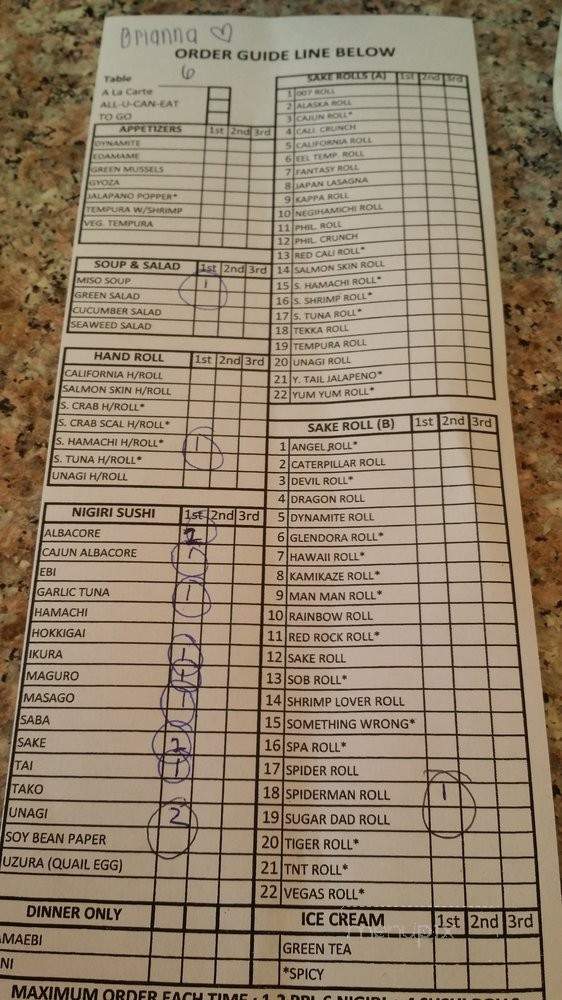 Brianna ♡
ORDER GUIDE LINE BELOW
Table 6
A La Carte
ALL-U-CAN-EAT
TO GO
APPETIZERS 1st 2nd 3rd
DYNAMITE
EDAMAME
GREEN MUSSELS
GYOZA
JALAPANO POPPER*
TEMPURA W/SHRIMP
VEG. TEMPURA
SOUP & SALAD 1st 2nd 3rd
MISO SOUP 1
GREEN SALAD
CUCUMBER SALAD
SEAWEED SALAD
HAND ROLL 1st 2nd 3rd
CALIFORNIA H/ROLL
SALMON SKIN H/ROLL
S. CRAB H/ROLL*
S. CRAB SCAL H/ROLL*
S. HAMACHI H/ROLL* 1
S. TUNA H/ROLL*
UNAGI H/ROLL
NIGIRI SUSHI 1st 2nd 3rd
ALBACORE 2
CAJUN ALBACORE
EBI
GARLIC TUNA 1
HAMACHI
HOKKIGAI
IKURA 1
MAGURO
MASAGO 1
SABA
SAKE 2
TAI 1
TAKO
UNAGI 2
SOY BEAN PAPER
UZURA (QUAIL EGG)
DINNER ONLY
MAEBI
NI
SAKE ROLLS (A) 1st 2nd 3rd
1 007 ROLL
2 ALASKA ROLL
3 CAJUN ROLL*
4 CALI. CRUNCH
5 CALIFORNIA ROLL
6 EEL TEMP. ROLL
7 FANTASY ROLL
8 JAPAN LASAGNA
9 KAPPA ROLL
10 NEGIHAMICHI ROLL
11 PHIL. ROLL
12 PHIL. CRUNCH
13 RED CALI ROLL*
14 SALMON SKIN ROLL
15 S. HAMACHI ROLL*
16 S. SHRIMP ROLL*
17 S. TUNA ROLL*
18 TEKKA ROLL
19 TEMPURA ROLL
20 UNAGI ROLL
21 Y. TAIL JALAPENO*
22 YUM YUM ROLL*
SAKE ROLL (B) 1st 2nd 3rd
1 ANGEL ROLL*
2 CATERPILLAR ROLL
3 DEVIL ROLL*
4 DRAGON ROLL
5 DYNAMITE ROLL
6 GLENDORA ROLL*
7 HAWAII ROLL*
8 KAMIKAZE ROLL*
9 MAN MAN ROLL*
10 RAINBOW ROLL
11 RED ROCK ROLL*
12 SAKE ROLL
13 SOB ROLL*
14 SHRIMP LOVER ROLL
15 SOMETHING WRONG*
16 SPA ROLL*
17 SPIDER ROLL
18 SPIDERMAN ROLL 1
19 SUGAR DAD ROLL
20 TIGER ROLL*
21 TNT ROLL*
22 VEGAS ROLL*
ICE CREAM 1st 2nd 3rd
GREEN TEA
*SPICY
menupix
MAXIMUM ORDER EACH TIME